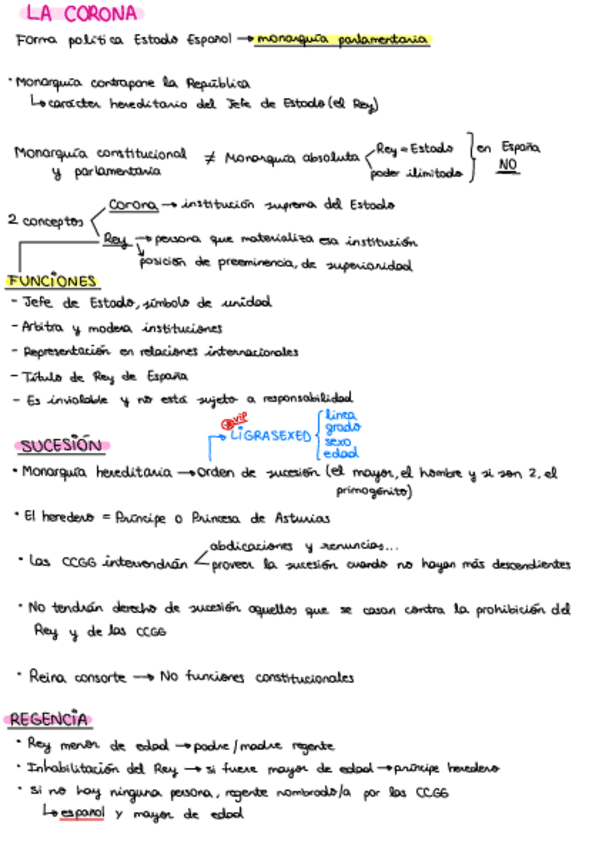 LA CORONA
Forma política Estado Español → monarquía parlamentaria
· Monarquía contrapone la República
↳ carácter hereditario del Jefe de Estado (el Rey)
Monarquía constitucional y parlamentaria ≠ Monarquía absoluta
Rey = Estado
poder ilimitado
en España
NO
2 conceptos
Corona → institución suprema del Estado
Rey → persona que materializa esa institución
posición de preeminencia, de superioridad
FUNCIONES
- Jefe de Estado, símbolo de unidad
- Arbitra y modera instituciones
- Representación en relaciones internacionales
- Título de Rey de España
- Es inviolable y no está sujeto a responsabilidad
VIP
LiGRASEXED
linea
grado
sexo
edad
SUCESIÓN
• Monarquía hereditaria → Orden de sucesión (el mayor, el hombre y si son 2, el
primogénito)
· El heredero = Príncipe o Princesa de Asturias
· Las CCGG intervendrán
abdicaciones y renuncias...
proveer la sucesión cuando no hayan más descendientes
· No tendrán derecho de sucesión aquellos que se casan contra la prohibición del
Rey y de las CCGG
· Reina consorte → No funciones constitucionales
REGENCIA
· Rey menor de edad → padre/madre regente
· Inhabilitación del Rey → si fuere mayor de edad → príncipe heredero
· si no hay ninguna persona, regente nombrado/a por las CCGG
↳ español y mayor de edad